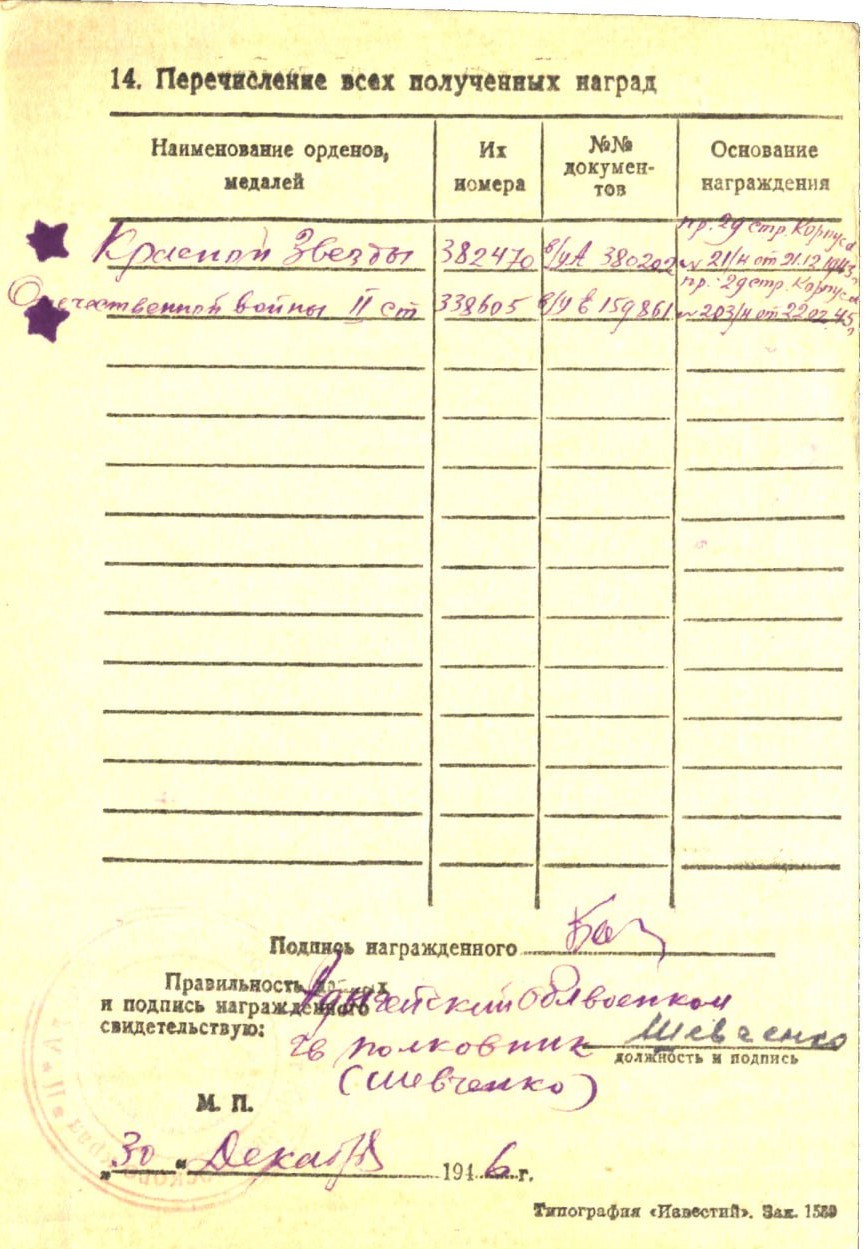 14. Перечисление всех полученных наград
Наименование орденов, медалей
Их номера
№№ документов
Основание награждения
Красной Звезды 382470 в/у А 380202 пр. 29 стр. Корпуса № 21/н от 21.12.1943
Отечественной войны II ст 338605 в/у Е 159861 пр. 29 стр. Корпуса № 203/н от 22 02 45
Подпись награжденного
Правильность данных
и подпись награжденного
свидетельствую:
Адыгейский Облвоенком
гв полковник
Шевченко
должность и подпись
(Шевченко)
М. П.
„30“ Декабря 1946 г.
Типография «Известий». Зак. 1589